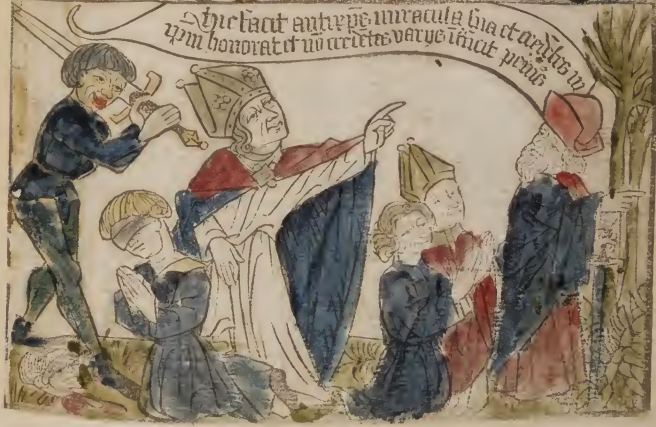 Hic facit antixpc miracula sua et credētes in
ipm honorat et nō credētes varijs īt̄ficit penis